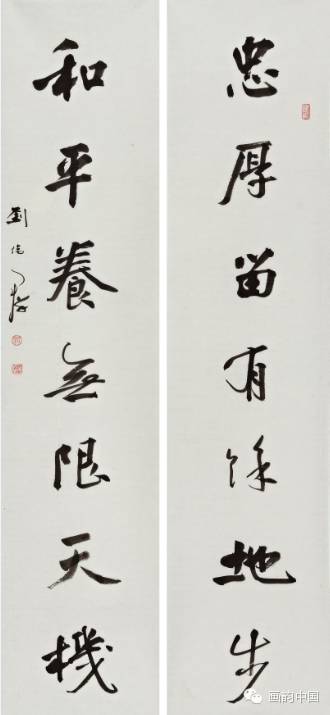 忠厚留有餘地步
和平養無限天機
画韵中国